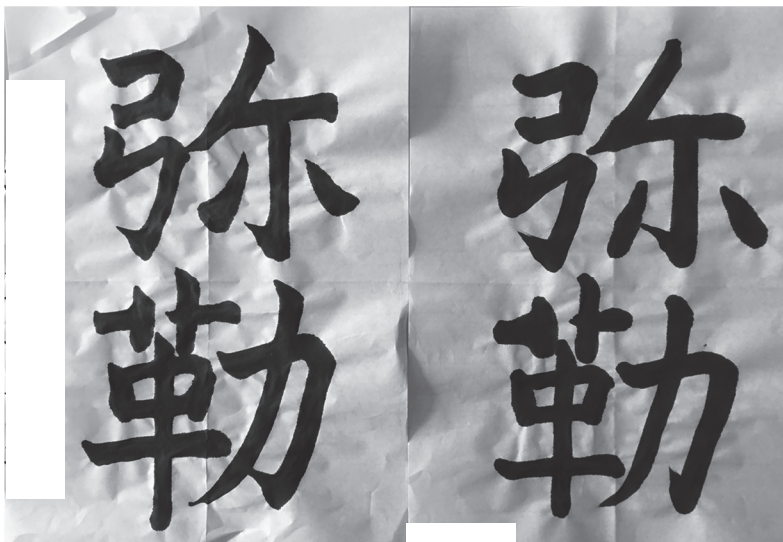 弥勒
弥勒